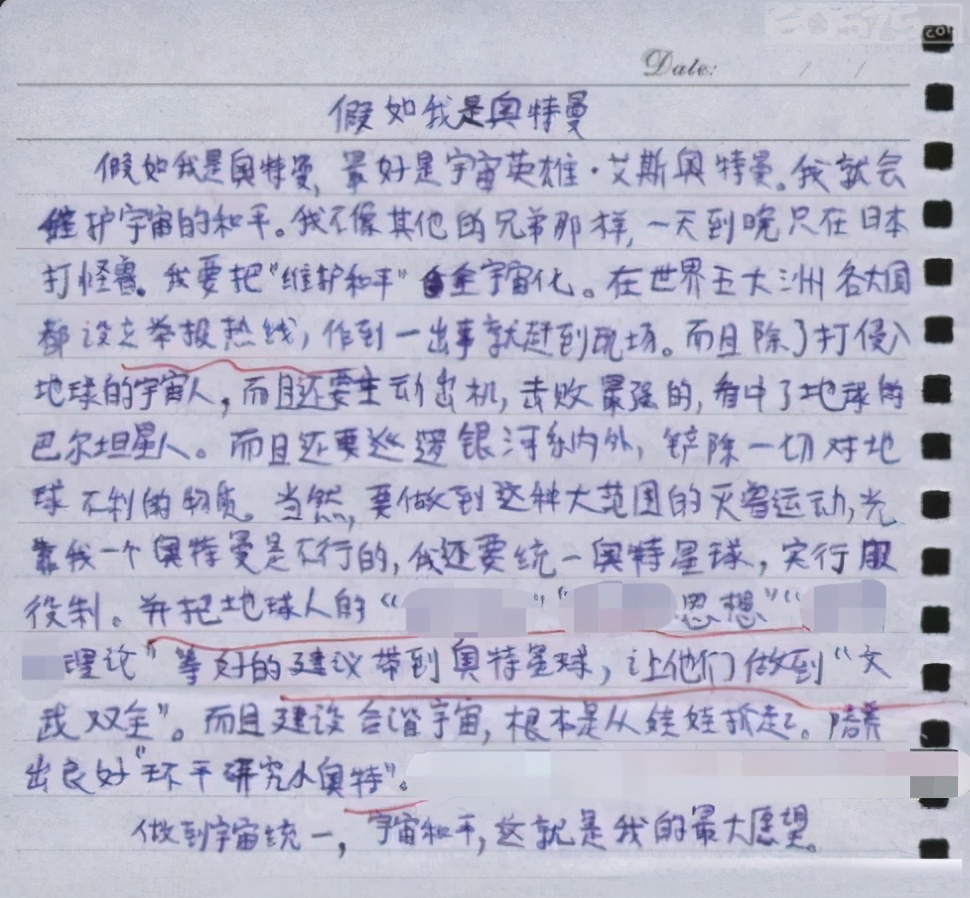 Date:
假如我是奥特曼
假如我是奥特曼,最好是宇宙英雄·艾斯奥特曼。我就会
维护宇宙的和平。我不像其他的兄弟那样,一天到晚只在日本
打怪兽。我要把“维护和平”全宇宙化。在世界五大洲各大国
都设立举报热线,作到一出事就赶到现场。而且除了打侵入
地球的宇宙人,而且还要主动出机,去败最强的,看中了地球的
巴尔坦星人。而且还要巡逻银河系内外,铲除一切对地
球不利的物质。当然,要做到这种大范围的灭害运动,光
靠我一个奥特曼是不行的,我还要统一奥特星球,实行服
役制。并把地球人的“”“思想”“
理论”等好的建议带到奥特星球,让他们做到“文
武双全”。而且建设合谐宇宙,根本是从娃娃抓起。培养
出良好“环平研究小奥特”。
做到宇宙统一,宇宙和平,这就是我的最大愿望。